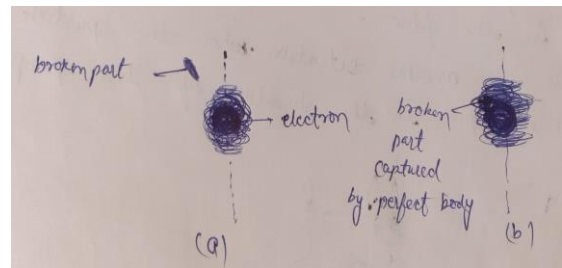 broken part
electron
broken
part
captured
by perfect body
(a)
(b)